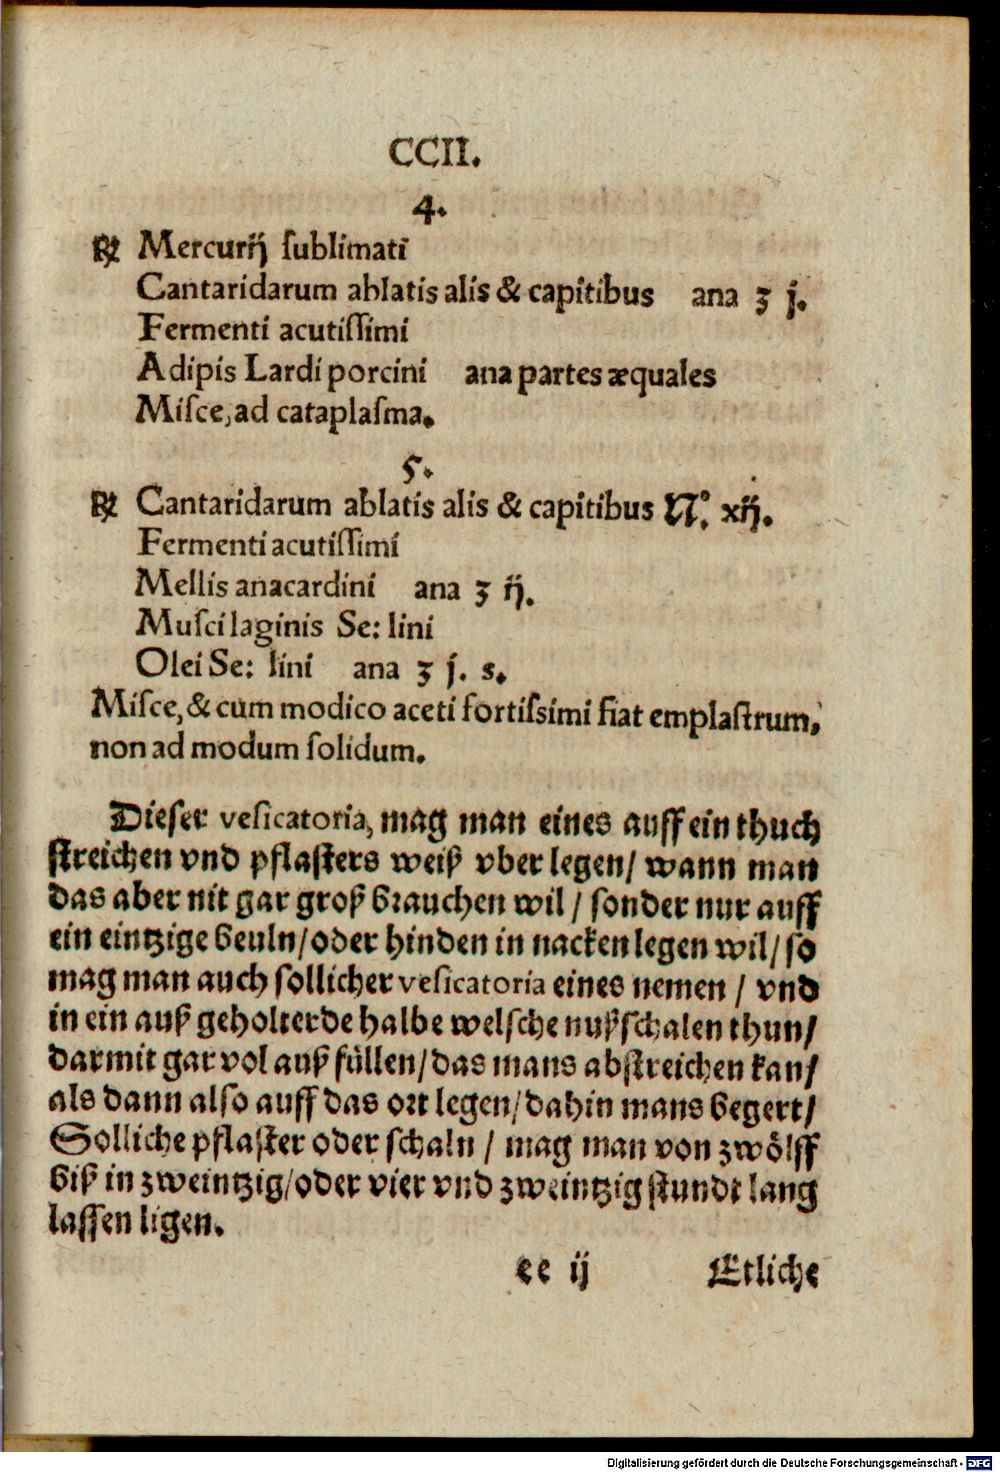 CCII.
4.
℞ Mercurij ſublimati
Cantaridarum ablatis alis & capitibus ana ʒ j.
Fermenti acutiſſimi
Adipis Lardi porcini ana partes æquales
Miſce, ad cataplaſma.
5.
℞ Cantaridarum ablatis alis & capitibus N.° xij.
Fermenti acutiſſimi
Mellis anacardini ana ʒ ij.
Muſcilaginis Se: lini
Olei Se: lini ana ʒ j. s.
Miſce, & cum modico aceti fortiſsimi fiat emplaſtrum,
non ad modum ſolidum.
Dieſer veſicatoria, mag man eines auff ein thuch
ſtreichen vnd pflaſters weiß vber legen/ wann man
das aber nit gar groß brauchen wil / ſonder nur auff
ein eintzige beuln/oder hinden in nacken legen wil/ ſo
mag man auch ſollicher veſicatoria eines nemen / vnd
in ein auß geholterde halbe welſche nußſchalen thun/
darmit gar vol auß füllen/das mans abſtreichen kan/
als dann alſo auff das ort legen/dahin mans begert/
Solliche pflaſter oder ſchaln / mag man von zwölff
biß in zweintzig/oder vier vnd zweintzig ſtundt lang
laſſen ligen.
ee ij Etliche
Digitalisierung gefördert durch die Deutsche Forschungsgemeinschaft - DFG